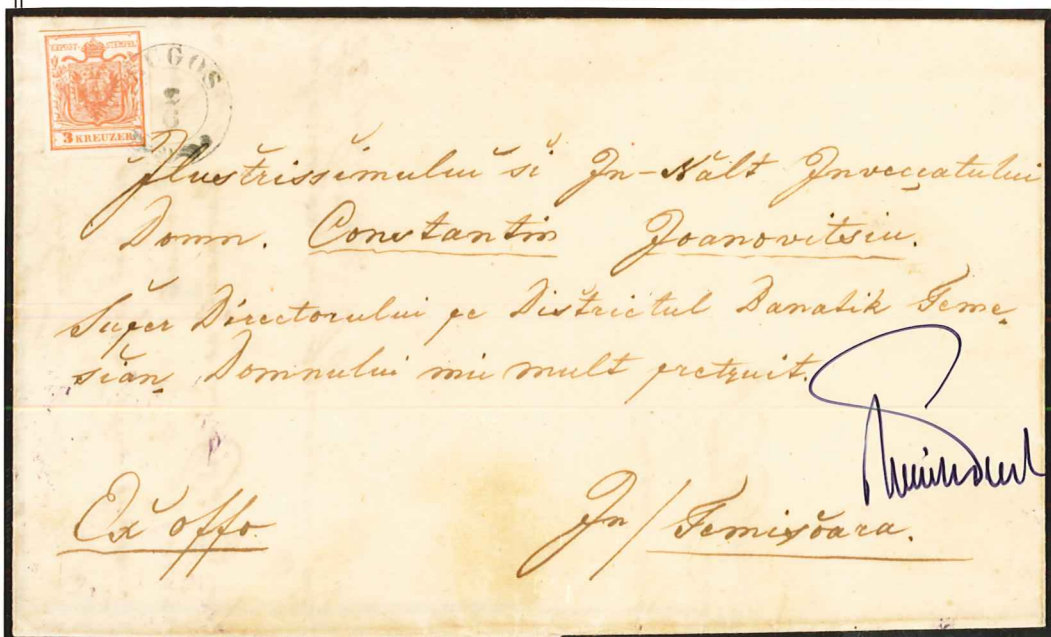 KKPOST-STEMPEL
3 KREUZER
LUGOS
Ilustrissimului si In-Nălt Invecçatului
Domn. Constantin Joanovitsiu.
Super Directorului pe Districtul Banatik Teme-
sian Domnului miu mult pretzuit.
Ex offo.
In / Temisoara.